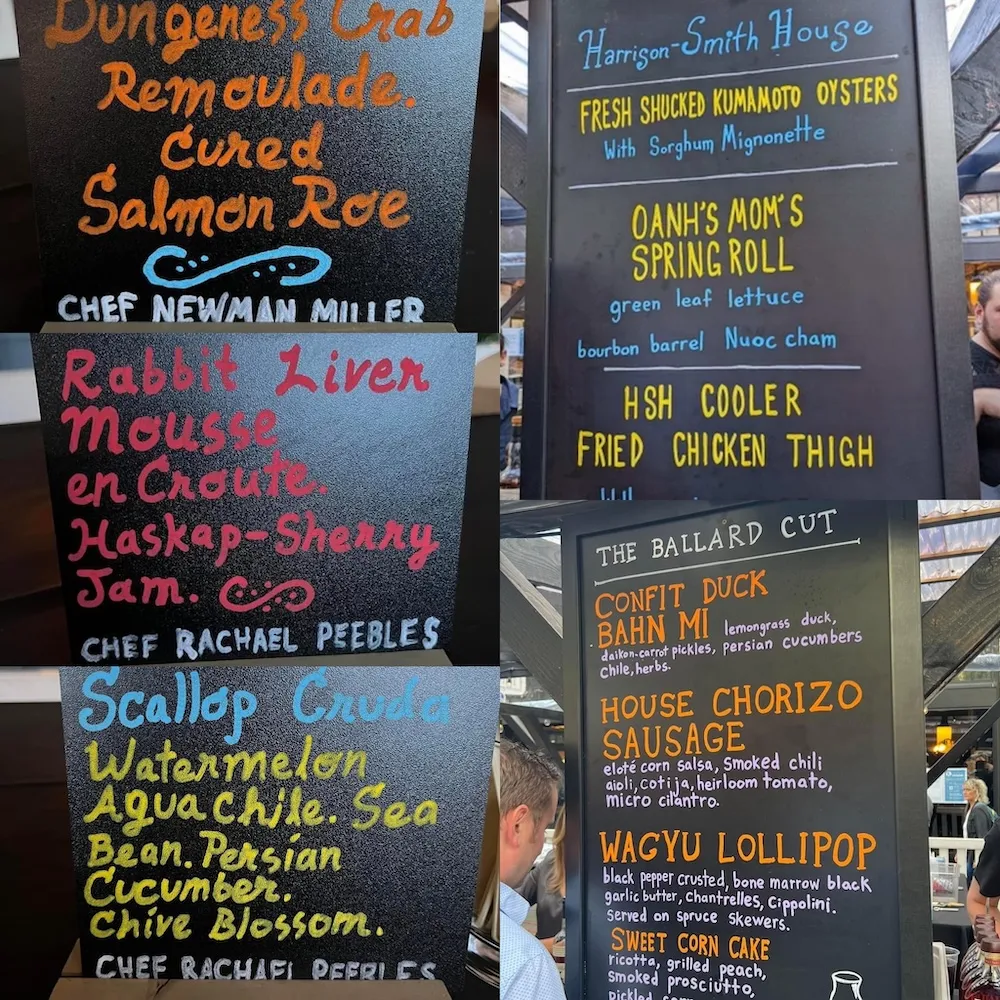 Dungeness Crab
Remoulade.
Cured
Salmon Roe
CHEF NEWMAN MILLER
Rabbit Liver
Mousse
en Croute.
Haskap-Sherry
Jam.
CHEF RACHAEL PEEBLES
Scallop Cruda
Watermelon
Aguachile. Sea
Bean. Persian
Cucumber.
Chive Blossom.
CHEF RACHAEL PEEBLES
Harrison-Smith House
FRESH SHUCKED KUMAMOTO OYSTERS
With Sorghum Mignonette
OANH'S MOM'S
SPRING ROLL
green leaf lettuce
bourbon barrel Nuoc cham
HSH COOLER
FRIED CHICKEN THIGH
THE BALLARD CUT
CONFIT DUCK
BAHN MI lemongrass duck,
daikon-carrot pickles, persian cucumbers
chile, herbs.
HOUSE CHORIZO
SAUSAGE
eloté corn salsa, smoked chili
aioli, cotija, heirloom tomato,
micro cilantro.
WAGYU LOLLIPOP
black pepper crusted, bone marrow black
garlic butter, Chantrelles, Cippolini.
Served on spruce skewers.
SWEET CORN CAKE
ricotta, grilled peach,
smoked prosciutto,
pickled